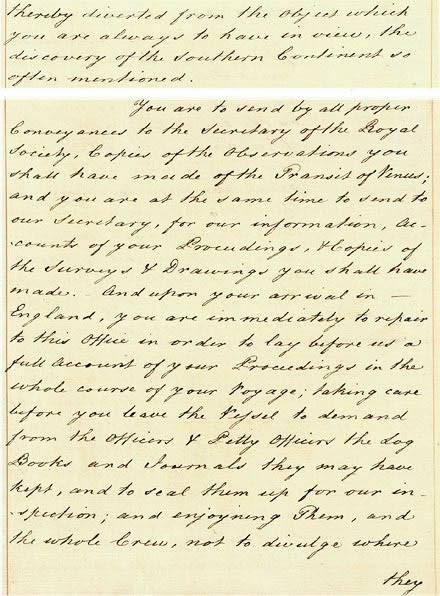 thereby diverted from the Object which
you are always to have in view, the
discovery of the Southern Continent so
often mentioned.
You are to send by all proper
Conveyances to the Secretary of the Royal
Society, Copies of the Observations you
shall have made of the Transit of Venus;
and you are at the same time to send to
our Secretary, for our information, Ac-
-counts of your Proceedings, & Copies of
the Surveys & Drawings you shall have
made. – And upon your arrival in —
England, you are immediately to repair
to this Office in order to lay before us a
full Account of your Proceedings in the
whole course of your Voyage; taking care
before you leave the Vessel to demand
from the Officers & Petty Officers the Log
Books and Journals they may have
kept, and to seal them up for our in-
-spection; and enjoyning Them, and
the whole Crew, not to divulge where
they